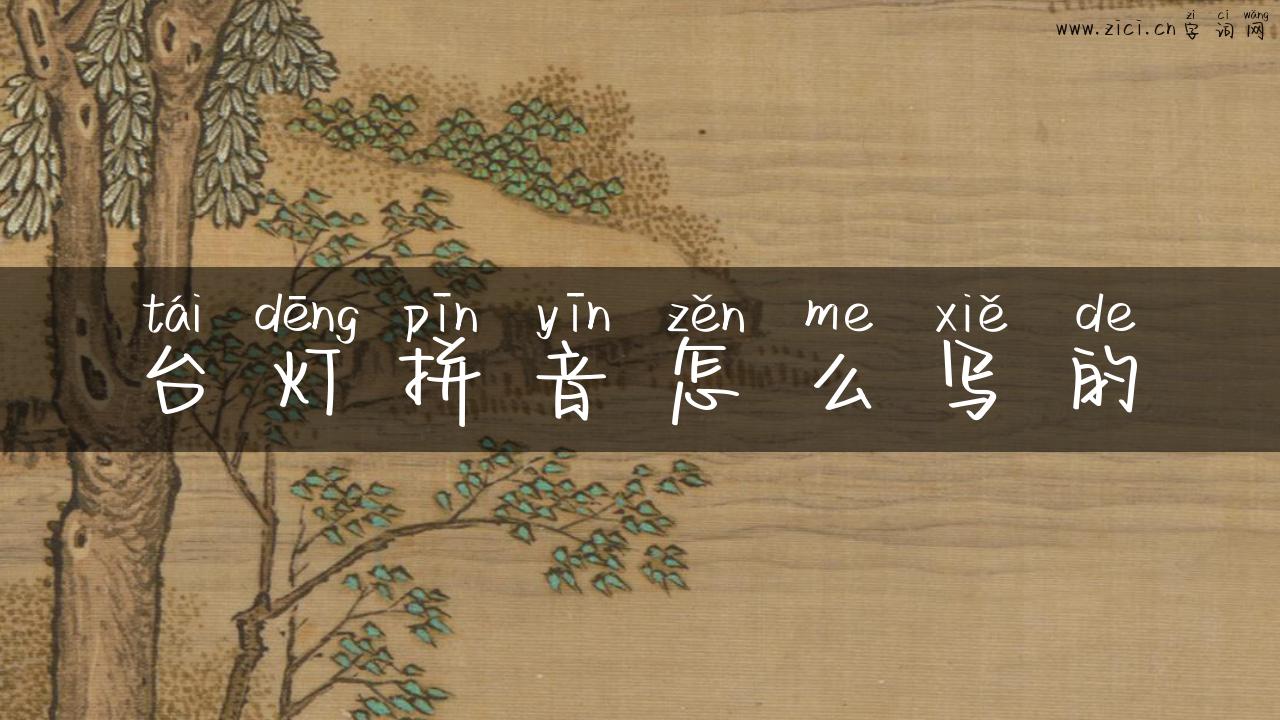 zì cí wǎng
www.zici.cn 字词网
tái dēng pīn yīn zěn me xiě de
台灯拼音怎么写的